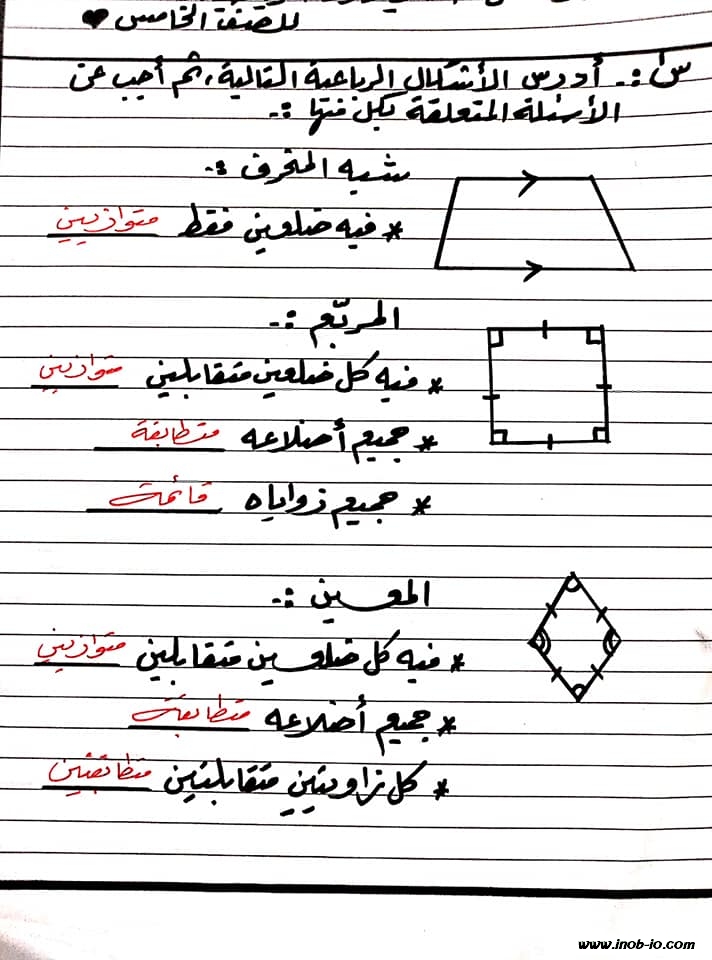 للصف الخامس ♥
س:- أدرس الأشكال الرباعية التالية، ثم أجب عن
الأسئلة المتعلقة بكل منها :-
شبه المنحرف :-
* فيه ضلعين فقط متوازيين
المربّع :-
* فيه كل ضلعين متقابلين متوازيين
* جميع أضلاعه متطابقة
* جميع زواياه قائمة
المعين :-
* فيه كل ضلعين متقابلين متوازيين
* جميع أضلاعه متطابقة
* كل زاويتين متقابلتين متطابقتين
www.inob-io.com